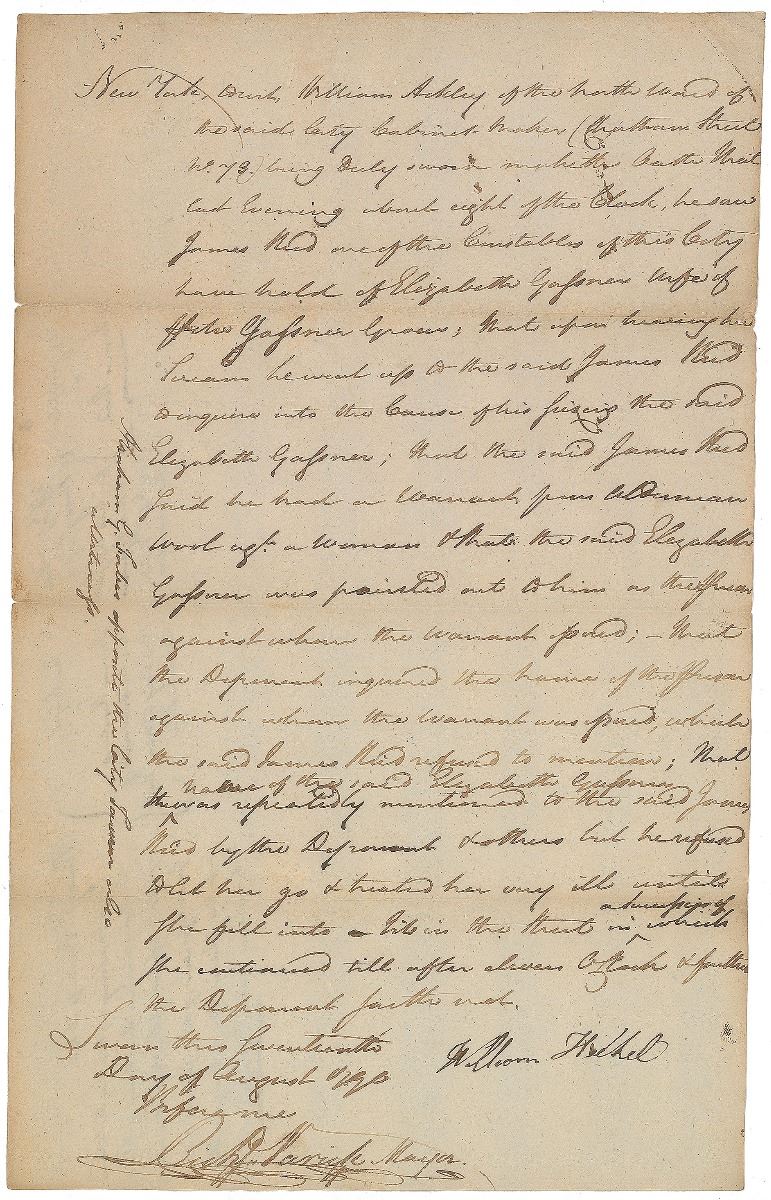 New York, to wit, William Ackley of the North Ward of
the said City Cabinet Maker (Chatham Street
No. 73.) being Duly sworn maketh Oath that
last Evening about eight of the Clock, he saw
James Reed one of the Constables of this City
have hold of Elizabeth Gaſsner Wife of
Gaſsner Grocer; that upon hearing her
Scream he went up to the said James Reed
to inquire into the Cause of his siezing the said
Elizabeth Gaſsner; that the said James Reed
said he had a Warrant from Alderman
Wool agt. a Woman & that the said Elizabeth
Gaſsner was pointed out to him as the Person
against whom the Warrant iſsued; – that
the Deponent inquired the name of the Person
against whom the Warrant was iſsued, which
the said James Reed refused to mention; that
name of the said Elizabeth Gaſsner
the was repeatedly mentioned to the said James
Reed by the Deponent & others but he refused
to let her go & treated her very ill until
she fell into a Fits in the Street in a succeſsion of which
she continued till after eleven O Clock & further
the Deponent saith not.
Sworn this Seventeenth
Day of August 1790
Before me
William
Richd Varick Mayor.
Abraham G. opposite the City Tavern also
a witneſs.